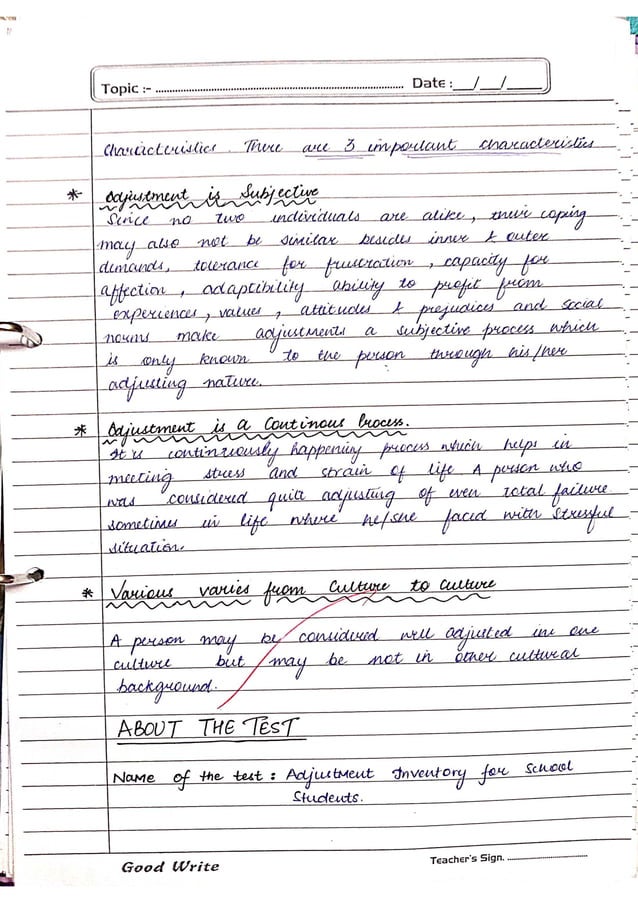 Topic :- ........ Date :__/__/____
Characteristics. There are 3 important characteristics
* Adjustment is Subjective
Since no two individuals are alike, their coping
may also not be similar besides inner & outer
demands, tolerance for frustration, capacity for
affection, adaptibility ability to profit from
experiences, values, attitudes & prejudices and social
norms make adjustments a subjective process which
is only known to the person through his/her
adjusting nature.
* Adjustment is a Continous Process.
It is continuously happening process which helps in
meeting stress and strain of life A person who
was considered quite adjusting of even total failure
sometimes in life where he/she faced with stressful
situation.
* Various varies from Culture to Culture
A person may be considered well adjusted in one
culture but may be not in other cultural
background.
ABOUT THE TEST
Name of the test : Adjustment Inventory for School
Students.
Good Write Teacher's Sign. ........